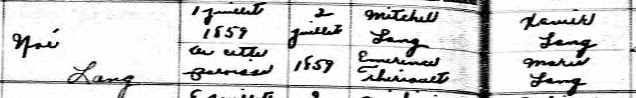 Noé Lang
1 juillet 1859 de cette paroisse
2 juillet 1859
Mitchell Lang
Emerence Theriault
Xavier Lang
Marie Lang